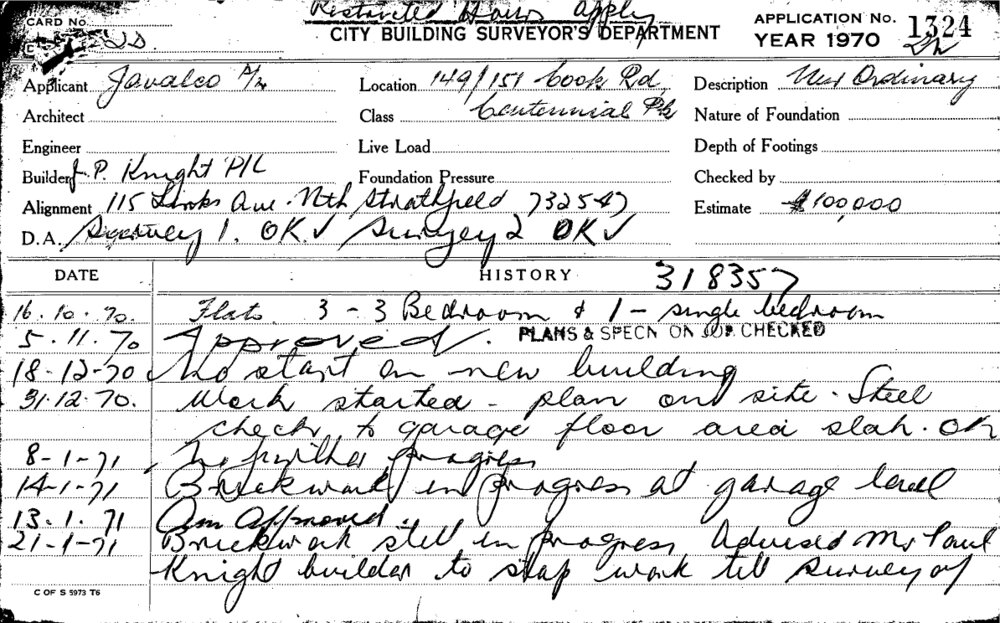 Restricted Hours Apply
CARD No.
CITY BUILDING SURVEYOR'S DEPARTMENT
APPLICATION No. 1324
YEAR 1970
Applicant Javalco P/L
Location 149/151 Cook Rd
Description New Ordinary
Architect
Class Centennial Pk
Nature of Foundation
Engineer
Live Load
Depth of Footings
Builder J. P. Knight P/L
Foundation Pressure
Checked by
Alignment 115 Links Ave. Nth Strathfield 732547
Estimate $100,000
D.A. Survey 1. OK ✓ Survey 2 OK ✓
DATE HISTORY 318357
16.10.70. Flats 3 - 3 Bedroom & 1 - single bedroom
5.11.70 Approved. PLANS & SPECN ON JOB CHECKED
18-12-70 No start on new building
31.12.70. Work started - plan on site. Steel
check to garage floor area slab. OK
8-1-71 No further progress
14-1-71 Brickwork in progress at garage level
13.1.71 Am Approved.
21-1-71 Brickwork still in progress Advised Mr Paul
Knight builder to stop work till survey of
C OF S 5973 T6